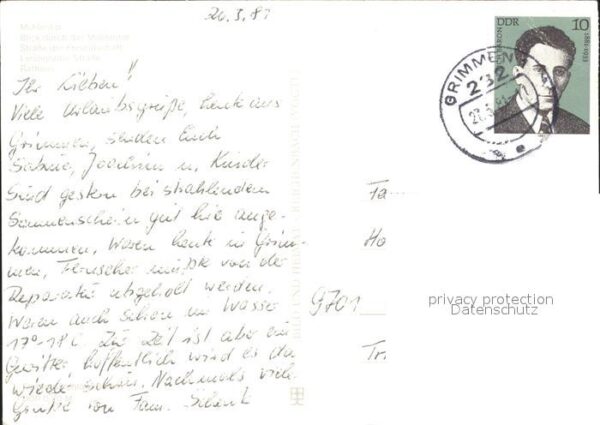 20.5.81
DDR
10
1881-1933
GRIMMEN
232
Blick durch das Mühlentor
Straße der Freundschaft
Leningrader Straße
Rathaus
Ihr Lieben!
Viele Urlaubsgrüße, heute aus
Grimmen, senden Euch
Sabine, Joachim u. Kinder
Sind gestern bei strahlendem
Sonnenschein gut hier ange-
kommen. Waren heute in Grim-
men, Fernseher mußte von der
Reparatur abgeholt werden.
Waren auch schon im Wasser
17°-18°C. Zur Zeit ist aber ein
Gewitter, hoffentlich wird es da
wieder schön. Nochmals viele
Grüße von Fam.
Fa
Ho
9701
Tr.
privacy protection
Datenschutz